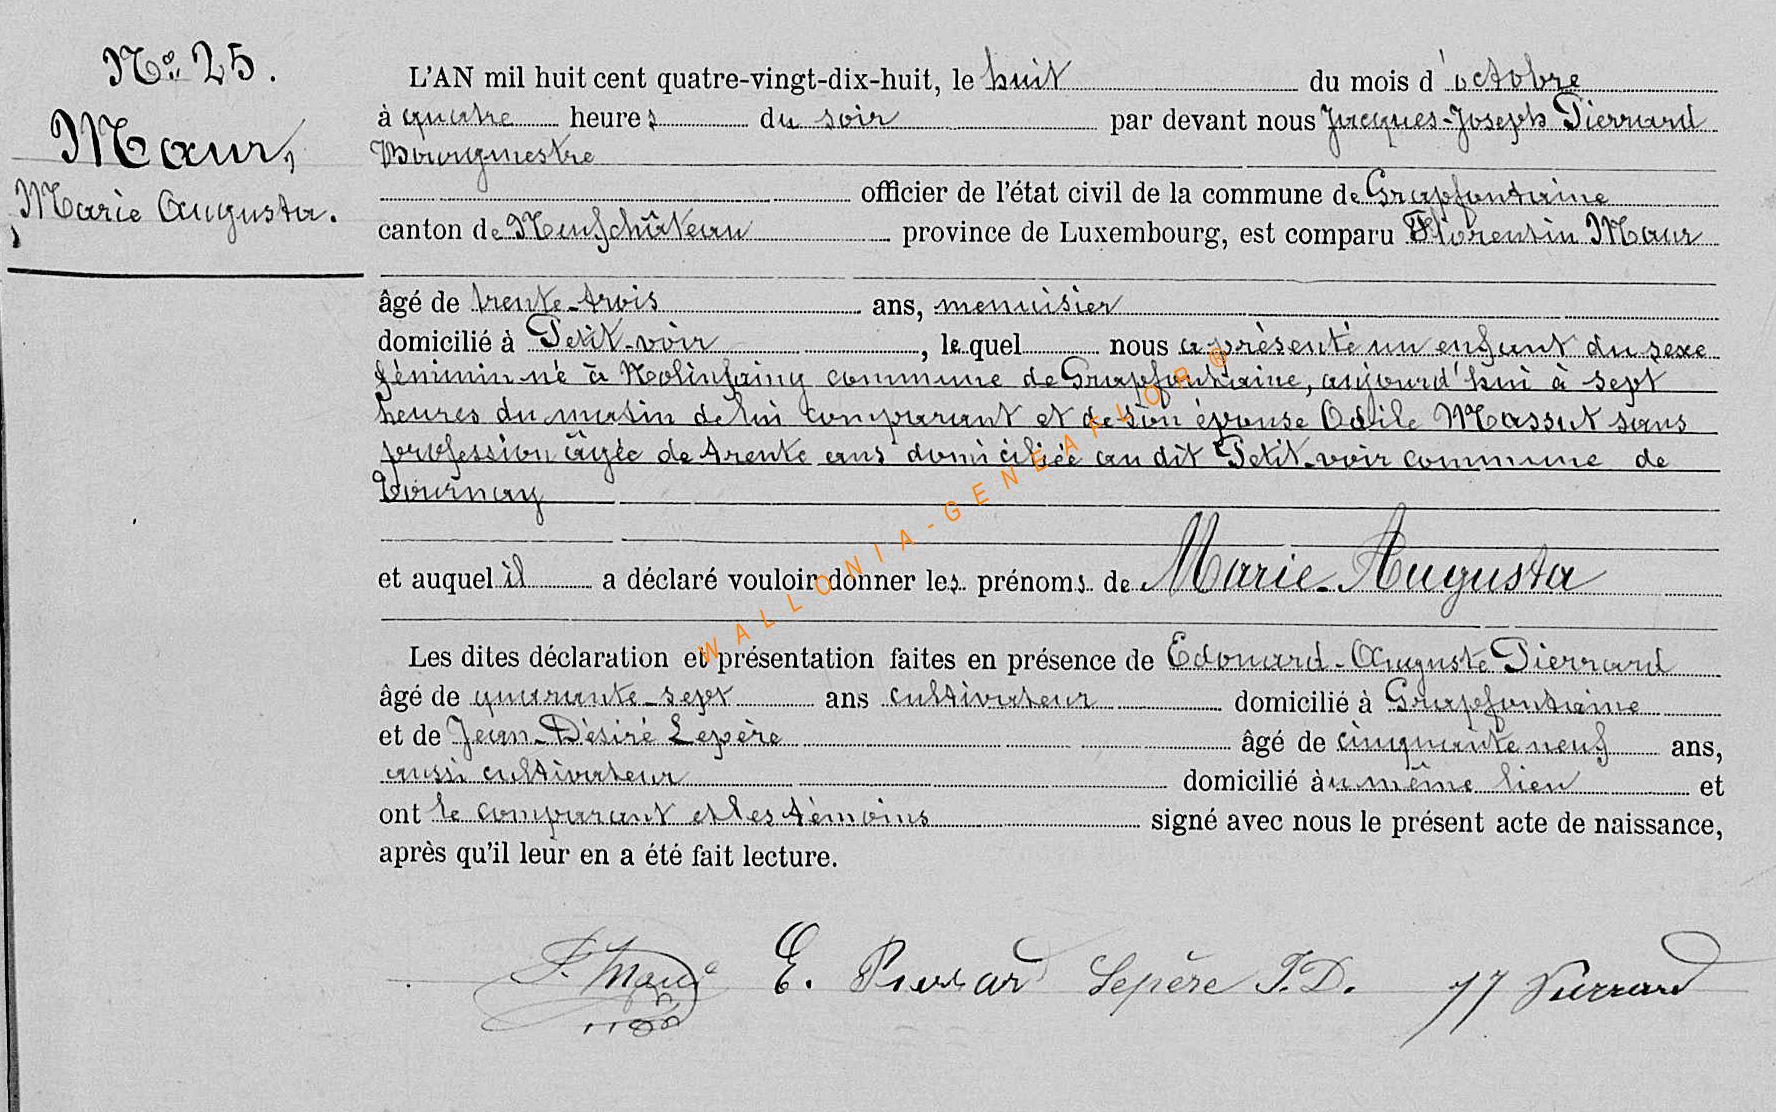 No 25.
Maur,
Marie Augusta.
L'AN mil huit cent quatre-vingt-dix-huit, le huit du mois d'octobre
à quatre heures du soir par devant nous Jacques-Joseph Pierrard
Bourgmestre
officier de l'état civil de la commune de Grapfontaine
canton de Neufchâteau province de Luxembourg, est comparu Florentin Maur
âgé de trente-trois ans, menuisier
domicilié à Petit-voir, lequel nous a présenté un enfant du sexe
féminin né à Molinfaing commune de Grapfontaine, aujourd'hui à sept
heures du matin de lui comparant et de son épouse Odile Massut sans
profession âgée de trente ans domiciliée au dit Petit-voir commune de
Tournay
et auquel il a déclaré vouloir donner les prénoms de Marie-Augusta
Les dites déclaration et présentation faites en présence de Edouard-Auguste Pierrard
âgé de quarante-sept ans cultivateur domicilié à Grapfontaine
et de Jean-Désiré Lepère âgé de cinquante neuf ans,
aussi cultivateur domicilié au même lieu et
ont le comparant et les témoins signé avec nous le présent acte de naissance,
après qu'il leur en a été fait lecture.
F. Maur E. Pierrard Lepère J.D. JJ Pierrard
WALLONIA-GENEAFLOR®